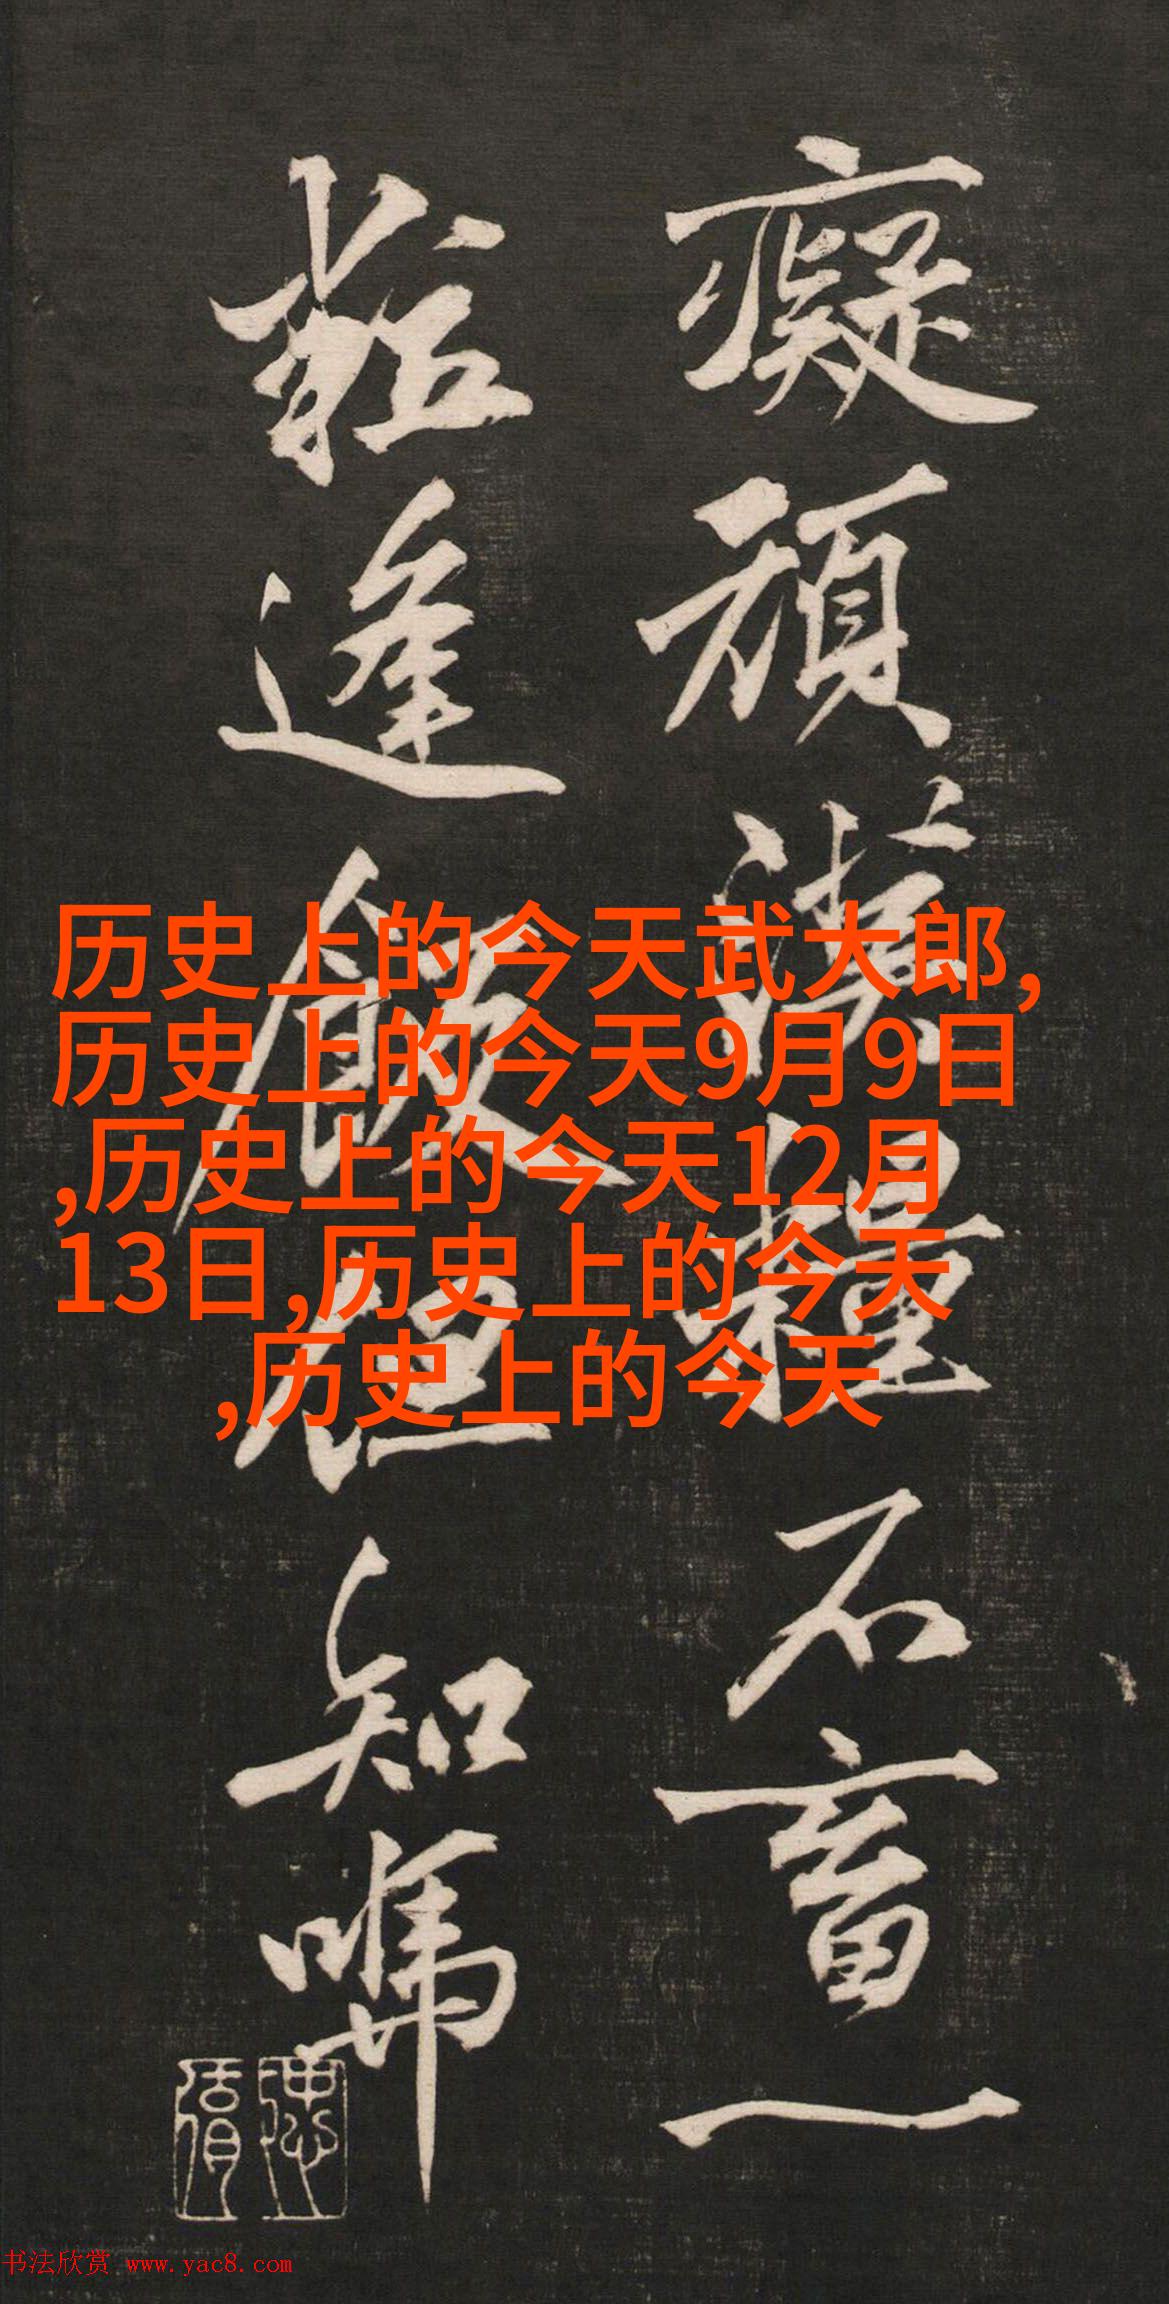 癡頑漢糧不畜一
粒逢飯但知
历史上的今天武大郎,
历史上的今天9月9日
,历史上的今天12月
13日,历史上的今天
,历史上的今天
书法欣赏 www.yac8.com